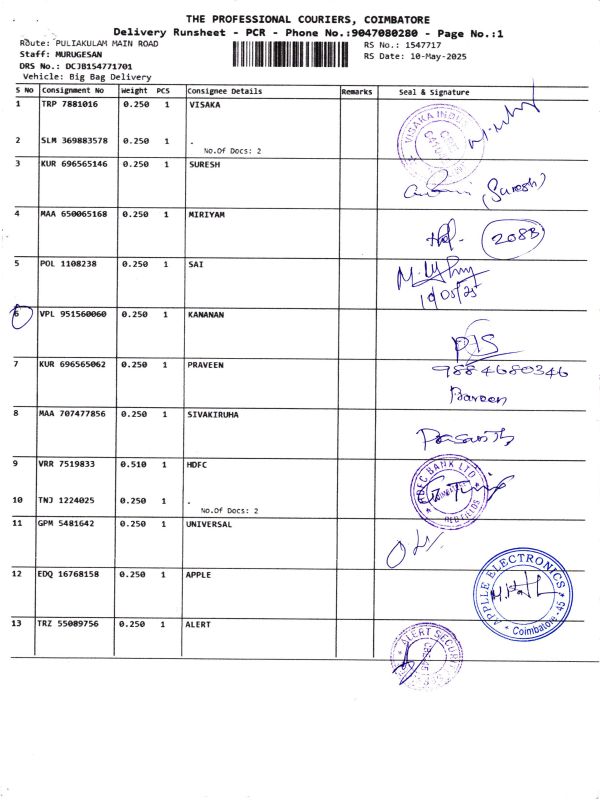 THE PROFESSIONAL COURIERS, COIMBATORE
Delivery Runsheet - PCR - Phone No.:9047080280 - Page No.:1
Route: PULIAKULAM MAIN ROAD
RS No.: 1547717
Staff: MURUGESAN
RS Date: 10-May-2025
DRS No.: DCJB154771701
Vehicle: Big Bag Delivery
S No Consignment No Weight PCS Consignee Details Remarks Seal & Signature
1 TRP 7881016 0.250 1 VISAKA
2 SLM 369883578 0.250 1 .
No.Of Docs: 2
3 KUR 696565146 0.250 1 SURESH
(Suresh)
4 MAA 650065168 0.250 1 MIRIYAM
208B
5 POL 1108238 0.250 1 SAI
10/05/25
6 VPL 951560060 0.250 1 KANANAN
7 KUR 696565062 0.250 1 PRAVEEN
9884680346
Praveen
8 MAA 707477856 0.250 1 SIVAKIRUHA
9 VRR 7519833 0.510 1 HDFC
HDFC BANK LTD
RED FIELDS
10 TNJ 1224025 0.250 1 .
No.Of Docs: 2
11 GPM 5481642 0.250 1 UNIVERSAL
12 EDQ 16768158 0.250 1 APPLE
APPLE ELECTRONICS
Coimbatore -45
13 TRZ 55089756 0.250 1 ALERT